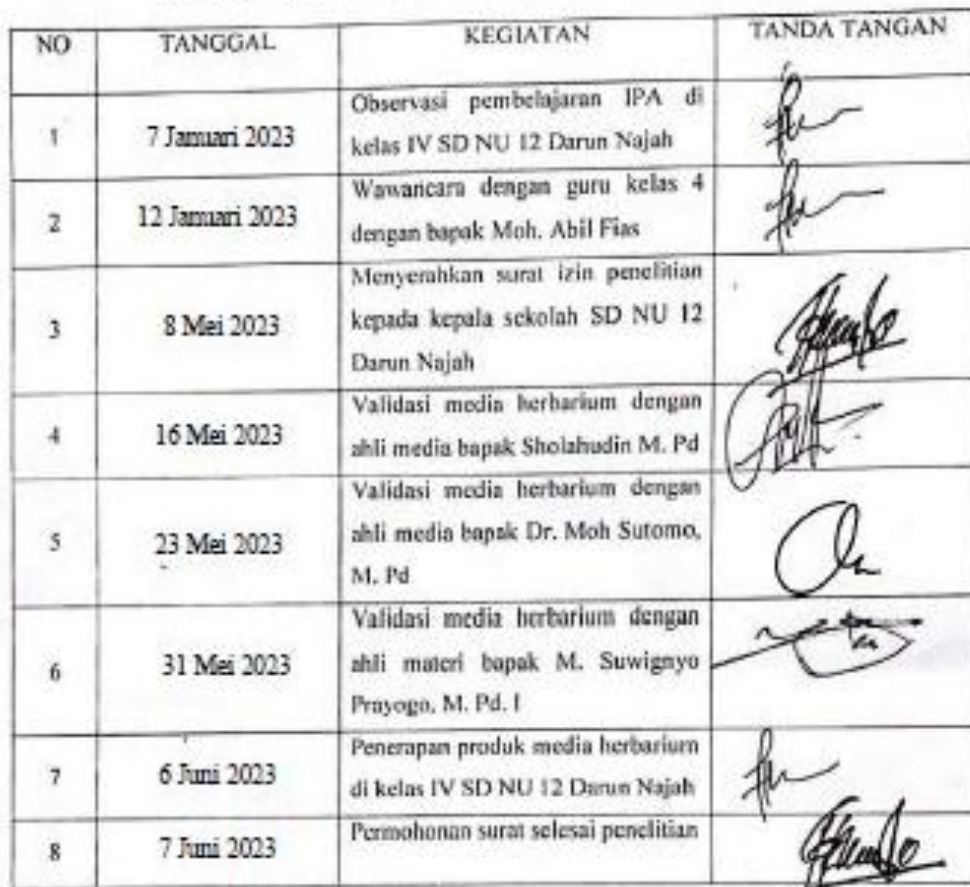 NO TANGGAL KEGIATAN TANDA TANGAN
1 7 Januari 2023 Observasi pembelajaran IPA di
kelas IV SD NU 12 Darun Najah
2 12 Januari 2023 Wawancara dengan guru kelas 4
dengan bapak Moh. Abil Fias
3 8 Mei 2023 Menyerahkan surat izin penelitian
kepada kepala sekolah SD NU 12
Darun Najah
4 16 Mei 2023 Validasi media herbarium dengan
ahli media bapak Sholahudin M. Pd
5 23 Mei 2023 Validasi media herbarium dengan
ahli media bapak Dr. Moh Sutomo,
M. Pd
6 31 Mei 2023 Validasi media herbarium dengan
ahli materi bapak M. Suwignyo
Prayogo, M. Pd. I
7 6 Juni 2023 Penerapan produk media herbarium
di kelas IV SD NU 12 Darun Najah
8 7 Juni 2023 Permohonan surat selesai penelitian